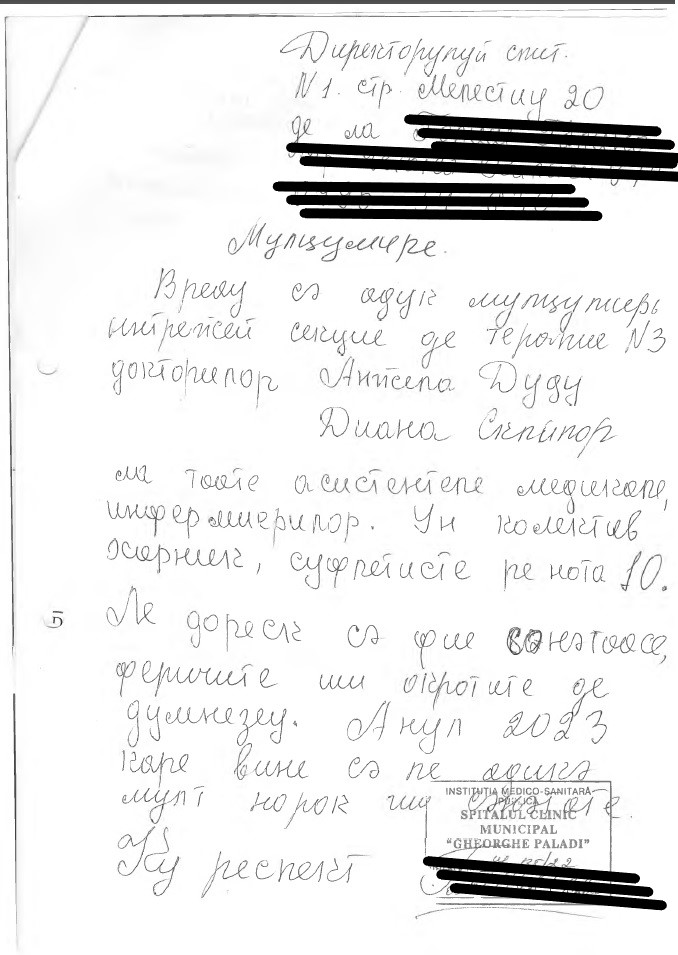 Директорулуй спит.
N1. стр. Мелестиу 20
де ла
Мулцумире.
Вреау сэ адук мулцумирь
ынтрежей секцие де терапие N3
докторилор Анжела Дуду
Диана Склипор
ла тоате асистентеле медикале,
инфермиерилор. Ун колектив
харник, суфлетисте пе нота 10.
Ле дореск сэ фие сэнэтоасе,
феричите ши окротите де
думнезеу. Анул 2023
каре вине сэ ле адикэ
мулт норок ши сэнэтате.
Ку респект
INSTITUȚIA MEDICO-SANITARĂ
PUBLICĂ
SPITALUL CLINIC
MUNICIPAL
"GHEORGHE PALADI"